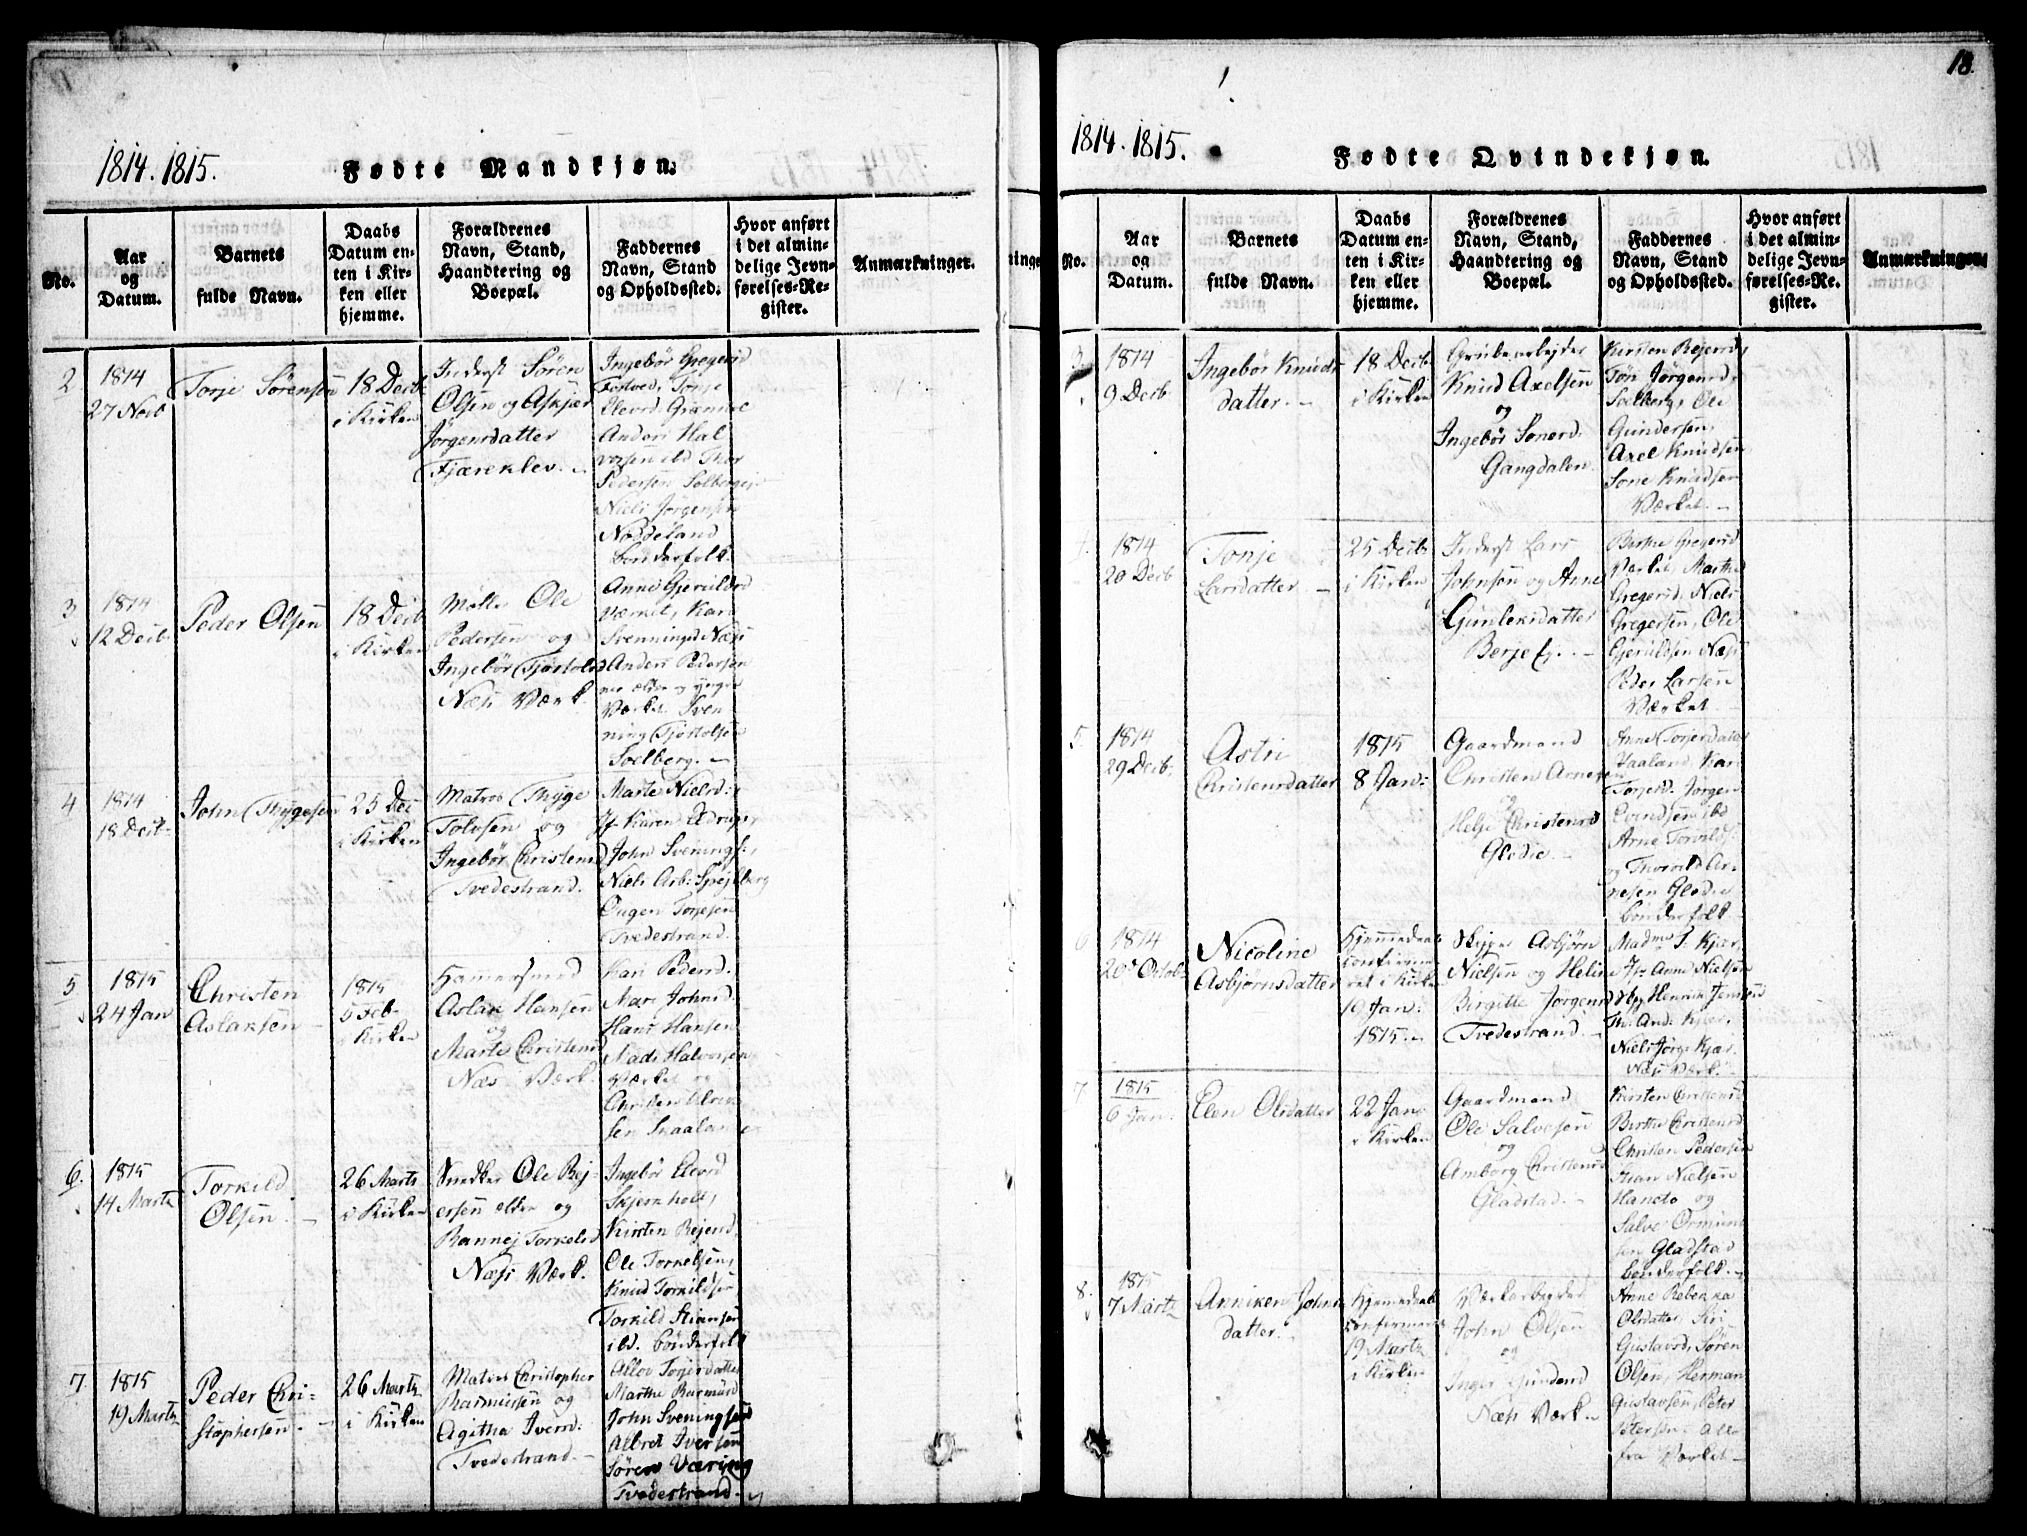 1814. 1815.
Fødte Mandkjøn.
No.
Aar
og
Datum.
Barnets
fulde Navn.
Daabs
Datum en-
ten i Kir-
ken eller
hjemme.
Forældrenes
Navn, Stand,
Haandtering og
Boepæl.
Faddernes
Navn, Stand
og Opholdssted.
Hvor anført
i det almin-
delige Jevn-
førelses-Re-
gister.
Anmærkninger.
2
1814
27 Novb
Torje Sørensøn
18 Decb
i Kirken
Inderst Sören
Olsen og Askjær
Jørgensdatter
Fjæreklev.
Ingebør Gregersd
Torje
Elevsd
Anders Hal
vorsen ibd Thor
Pedersen Solberg
Niels Jørgensen
Noddeland
bønderfolk
3
1814
12 Decb
Peder Olsen
18 Decb
i Kirken
Møller Ole
Pedersen og
Ingebør Tjostolsd
Næss Værk
Anne Gjeruldsd
Værket, Kari
Svenningsd Næss
Anders Pedersen
ældre og yngre
Værket Sven
ning Tjostolsen
Solberg.
4
1814
18 Decb
John Thygesen
25 Dec
i Kirken
Matros Thyge
Tolvsen og
Ingebør Christensd
Tvedestrand.
Marte Nielsd:
Jf. Karen
John Svenings:
Niels Arb:
Torjesen
Tvedestrand.
5
1815
24 Jan
Christen
Aslaksen
1815
5 Feb
i Kirken
Hamersmed
Aslak Hansen
og
Marte Christensd
Næs Værk.
Kari Pedersd.
Mari Johnsd.
Hans Hansen
Mads Halvorsen
Værket og
Christen
sen Skaaland
6.
1815
14 Martz
Torkild
Olsen.
26 Marts
i Kirken
Snedker Ole Rej-
ersen ældre og
Ronnej Torkelsd
Næss Værk.
Ingebør Elevsd
Skjernholt,
Kirsten Rejersd,
Ole Torkelsen,
Knud Torkildsen
Torkild Stiansen
ibd. bönderfolk
7.
1815
19 Martz
Peder Chri-
stophersen.
26 Martz
i Kirken
Matros Christopher
Rasmussen og
Agitha Iversd:
Tvedestrand.
Torjersdatter
Marthe
John Svenings
Albret Iversen
Søren Væring
Tvedestrand.
18.
1814. 1815.
Fødte Qvindekjøn.
No.
Aar
og
Datum.
Barnets
fulde Navn.
Daabs
Datum en-
ten i Kir-
ken eller
hjemme.
Forældrenes
Navn, Stand,
Haandtering og
Boepæl.
Faddernes
Navn, Stand
og Opholdssted.
Hvor anført
i det almin-
delige Jevn-
førelses-Re-
gister.
Anmærkninger.
3
1814
9 Decb
Ingebør Knuds
datter.
18 Decb
i Kirken
Grubearbejder
Knud Axelsen
og
Ingebør Sonesd.
Gangdalen
Kirsten Rejersd,
Jørgensd.
Solberg, Ole
Gundersen,
Axel Knudsen
Sone Knudsen
Værket.
1814
20 Decb
Tonje
Larsdatter
25 Decb
i Kirken
Inderst Lars
Johnsen og Anne
Gunleksdatter
Berje
Berthe Gregersd
Værket, Marthe
Gregersd, Niels
Gregersen, Ole
Gjeruldsen Næss
Peder Larsen
Værket
5.
1814
29 Decb.
Astri
Christensdatter
1815
8 Jan:
Gaardmand
Christen Arnesen
og
Helje Christensd
Glødie.
Anne Torjersdatter
Kari
Jørgen
Evindsen ibd
Arne
og Thorvold Ar-
nesen Glødie
bønderfolk
6
1814
20 Octob
Nicoline
Asbjørnsdatter
Hjemmedøbt
confirme
ret i Kirken
10 Jan:
1815.
Asbjørn
Nielsen og Helene
Birgitte Jørgensd
Tvedestrand.
Madme S. Kjær,
Jfr Anne Nielsen
Henrik Jensen
Th: And: Kjær,
Niels Jörg: Kjær
Næss Værk.
7
1815
6 Jan.
Elen Olsdatter
22 Jan
i Kirken
Gaardmand
Ole Salvesen
og
Amborg Christensd
Gladstad.
Kirsten Christensd
Berthe Christensd
Christen Pedersen
Nielsen
Hancto og
Salve Ormund
sen Gladstad
bönderfolk.
8.
1815
7 Martz
Anniken Johns
datter.
Hjemmedøbt
confirmeret
19 Martz
i Kirken
Værkarbejder
John Olsen
og
Inger Gundersd
Næss Værk
Anne Rebekka
Olsdatter, Siri
Gustavsd, Søren
Olsen, Herman
Gustavsen, Peter
Petersen. Alle
fra Værket